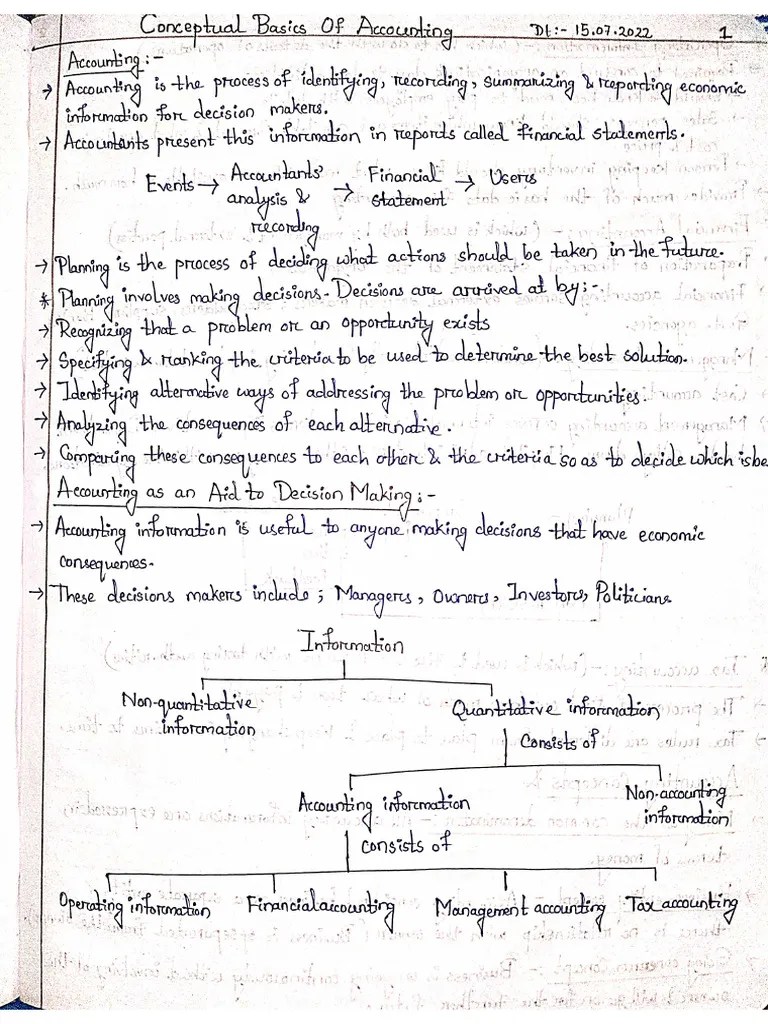 Conceptual Basics Of Accounting Dt:- 15.07.2022 1
Accounting:-
→ Accounting is the process of identifying, recording, summarizing & reporting economic
information for decision makers.
→ Accountants present this information in reports called financial statements.
Events → Accountants' analysis & recording → Financial statement → Users
→ Planning is the process of deciding what actions should be taken in the future.
* Planning involves making decisions. Decisions are arrived at by:-
→ Recognizing that a problem or an opportunity exists
→ Specifying & ranking the criteria to be used to determine the best solution.
→ Identifying alternative ways of addressing the problem or opportunities.
→ Analyzing the consequences of each alternative.
→ Comparing these consequences to each other & the criteria so as to decide which is be
Accounting as an Aid to Decision Making:-
→ Accounting information is useful to anyone making decisions that have economic
consequences.
→ These decisions makers include; Managers, Owners, Investors, Politicians
Information
Non-quantitative information
Quantitative information
Consists of
Accounting information
Non-accounting information
Consists of
Operating information Financial accounting Management accounting Tax accounting